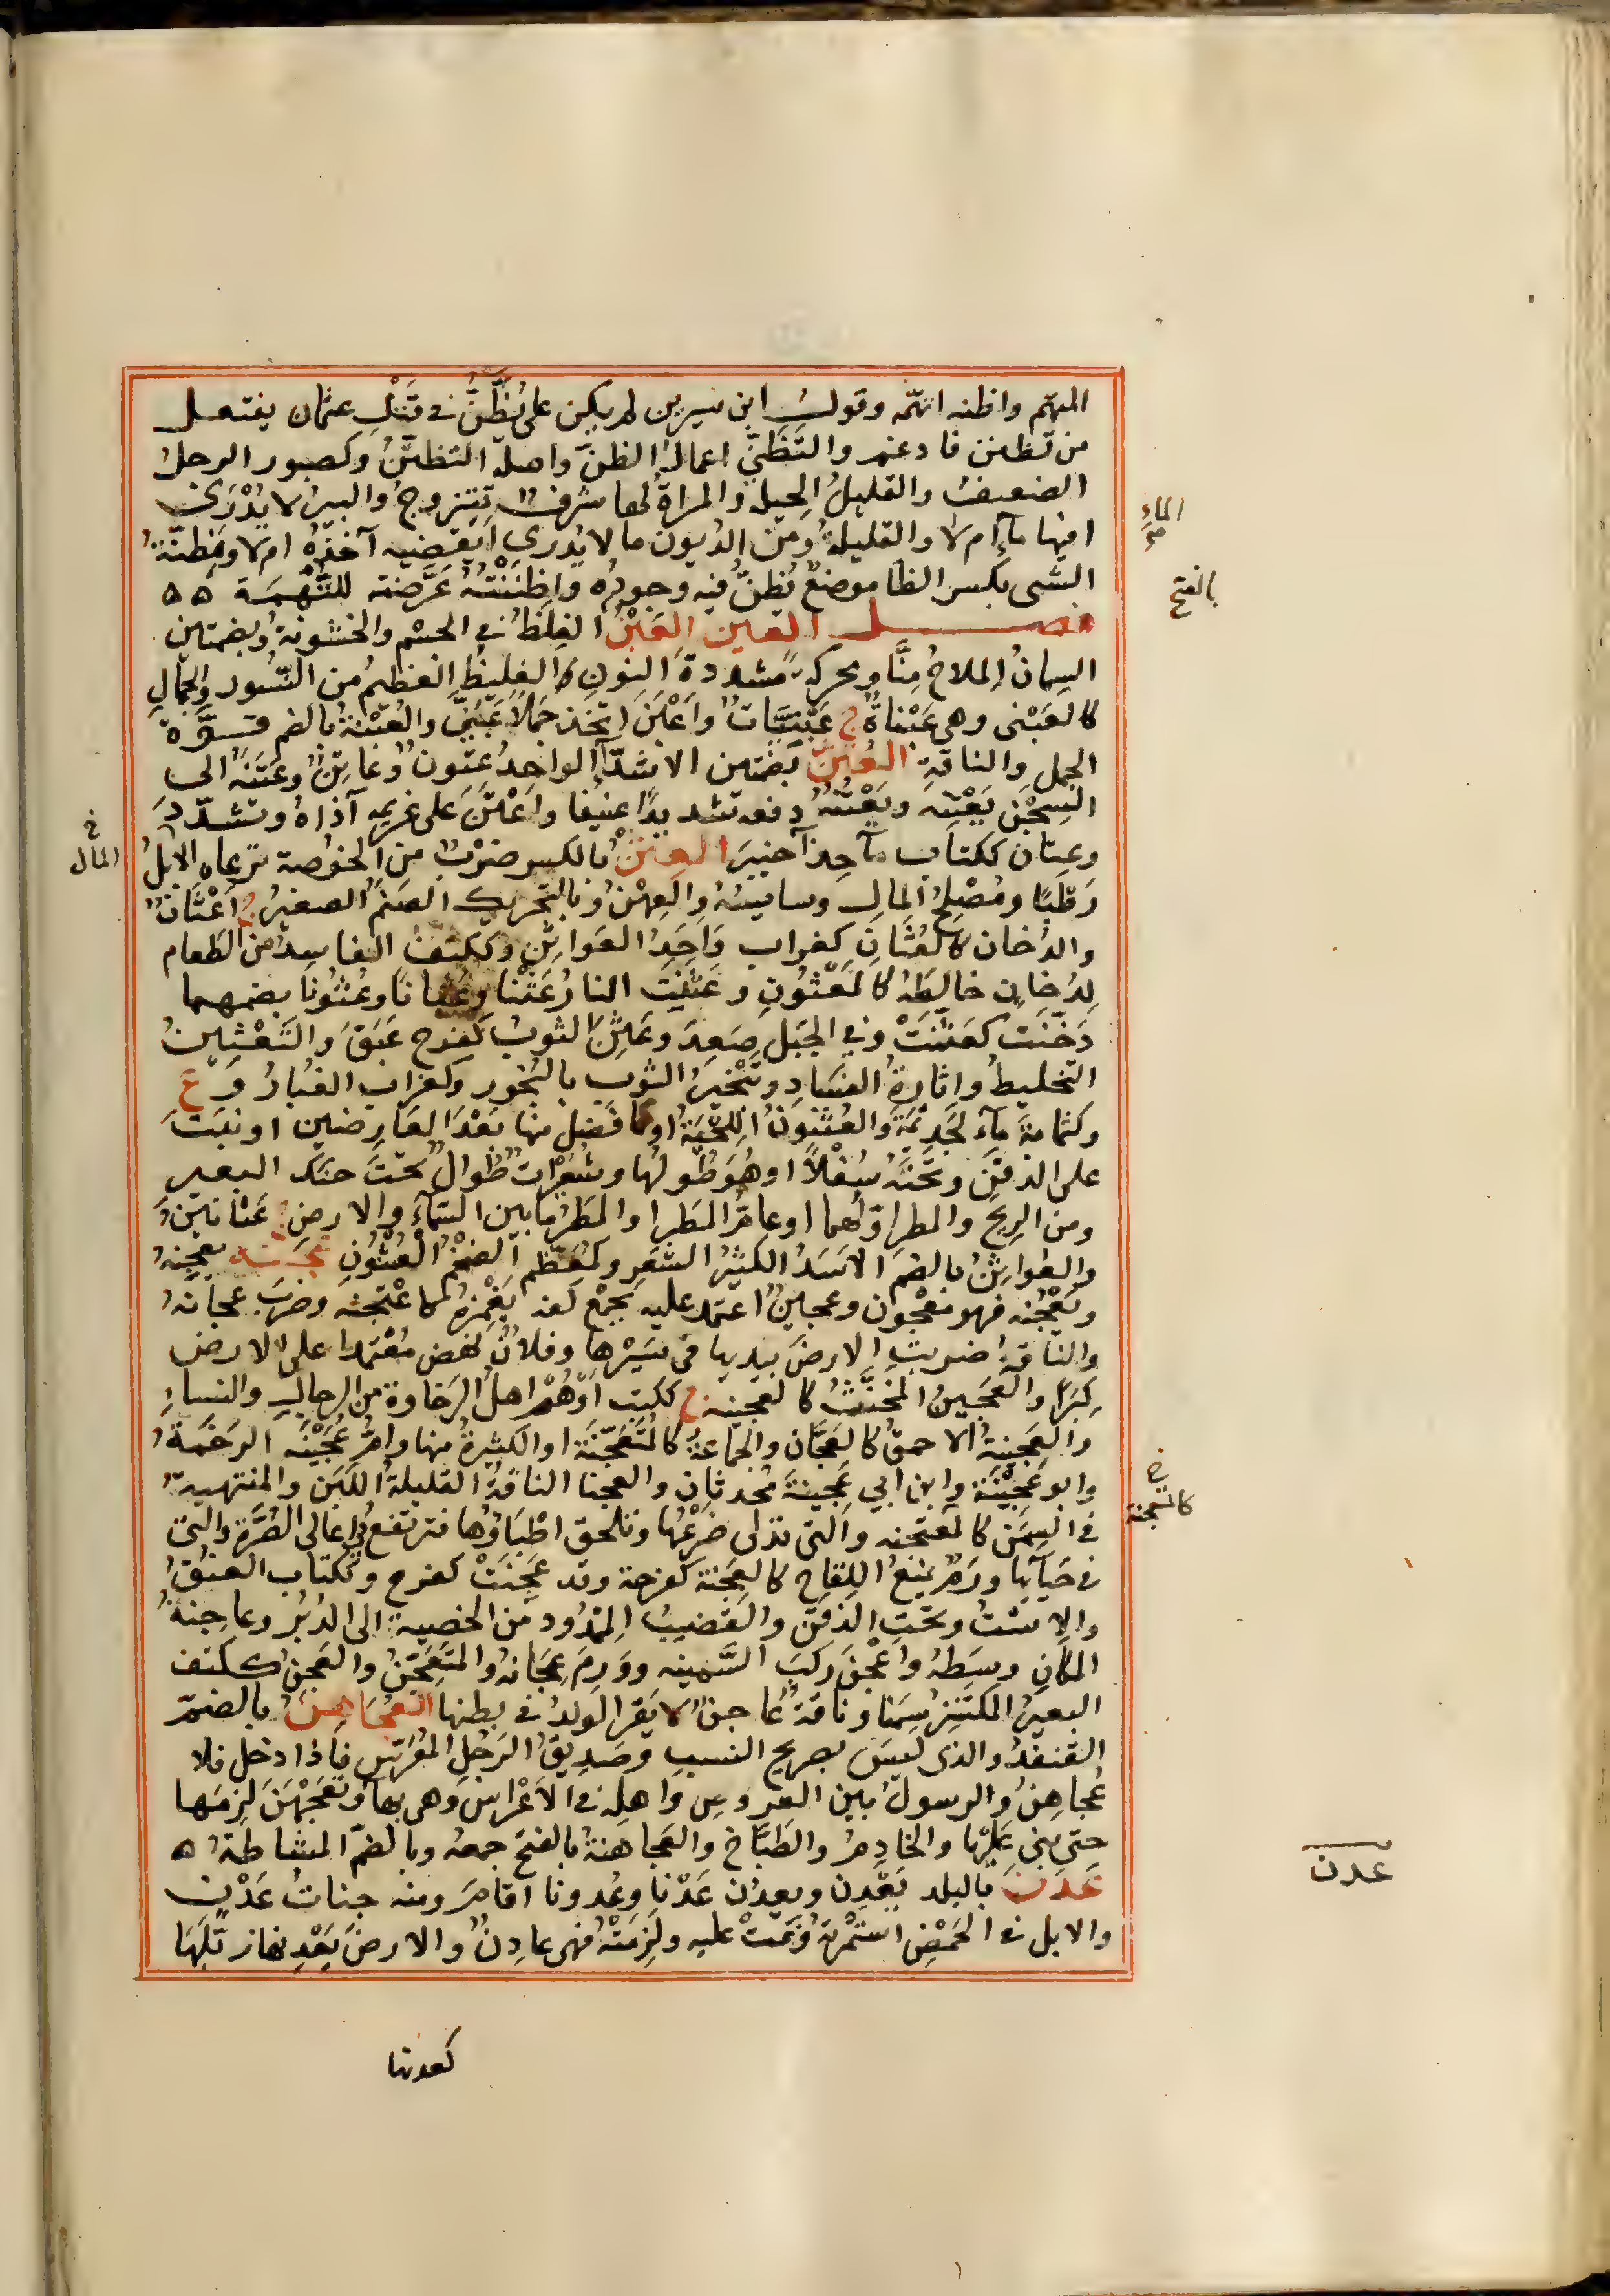 المتهم واظنه اتهمه وقولُ ابن سيرين لم يكن علىٌّ يُظَّنُّ فى قَتْلِ عثمان يفتعل
من تظنن فادغم والتَّظَنِّى اعمالُ الظنّ واصله التظنّنُ وكصبور الرجلُ
الضعيفُ والقليلُ الحِيلِ والمراةُ لها شرفٌ تتزوجُ والبيرُ لا يُدْرَى
افيها ماء ام لا والقليلة ومن الديون ما لا يدرى ايقضيه آخذه ام لا ومظنّة
الشى بكسر الظا موضعٌ يُظنّ فيه وجوده واظنَنْتُهُ عَرَّضته للتُّهْمَة ۵۵
فصل العين العَبْنُ الغِلَظُ فى الجسْم والخشونةُ وبضمتين
السِمانُ المِلاحُ مِنَّا ومحركة مشددة النون الغليظُ العظيمُ من النُّسُور والجِمالِ
كالعَبَنَّى وهى عَبَنَّاةٌ ج عَبَنَّيَاتٌ واَعْبَنَ اتّخذ جَمَلاً عَبَنَّى والعُبْنَةُ بالضم قوَّة
الجمل والناقةِ العُتُنُ بضمتين الاشدّآءُ الواحِدُ عَتُونٌ وعاتِنٌ وعَتَنَهُ الى
السِجْن يَعْتِنُه ويَعْتُنُهُ دفعه تشديدًا عنيفا واَعْتَنَ على غريمِه آذاهُ وتشدّدَ
وعِتان ككتاب مآء حِذآء خَبِيرَ العِثْنُ بالكسر ضَرْبٌ من الخُوصة ترعاه الابلُ
رَطْبًا ومُصْلِحُ المال وسايسُهُ والعِهْنُ وبالتحريك الصَنَمُ الصغيرُ ج اَعْثَانٌ
والدُخان كالعُثَانِ كغراب واحِدُ العَواثِنِ وككتف الفاسِدُ من الطَعام
لِدُخانٍ خالَطَهُ كالمَعْثُونِ وعَثَنَتِ النارُ عَثْنًا وعُثانًا وعُثُونًا بضمهما
دَخَّنَت كعَثَّنَتْ وفى الجَبَلِ صَعِدَ وعَثِنَ الثوبُ كفرح عَبِقَ والتَعْثِينُ
التخليطُ واِثارةُ الفسَاد وتَبْخيرُ الثوب بالبَخور وكغراب الغُبارُ و ع
وكثمامة مآء لجَذِيمَةَ والعُثْنُونُ اللِحْيَةُ او ما فَضَلَ منها بَعْدَ العَارِضين او نَبَتَ
على الذقَنِ وتحْتَهُ سُفْلاً او هُوَ طُولُها وشُعَيْراتٌ طُوالٌ تحْتَ حنك البعير
ومن الرِيح والمطر اوّلهما او عامّ المَطَر او المَطَرُ ما بين السَمآءِ والارضِ ج عَثانِينُ
والعُواثِنُ بالضم الاسَدُ الكثيرُ الشَعَر وكمُعَظَّمٍ الضخْمُ العُثْنُونِ عَجَنَه يعجِنُهُ
ويَعْجُنُه فهو مَعْجُون وعجينٌ اعتمد عليه بجُمْع كفه يَغْمِزُهُ كاعْتَجَنَه وضرَبَ عجانَه
والناقةُ ضربتِ الارضَ بيديها فى سَيْرها وفلانٌ نهض مُعْتَمِدا على الارض
كِبَرًا والعَجِينُ المُخَنَّثُ كالعجينة ج ككتب اَوْ هُمْ اهلُ الرَخاوة من الرجالِ والنساءِ
والعجينةُ الاحمقُ كالعَجَّان والجَماعةُ كالمُتَعَجِّنَة او الكثيرةُ منها وامُّ عَجِيْنَه الرَخَمةُ
وابو عجِيْنَة وابن ابي عَجِينة مُحدثانِ والعجنا الناقةُ القليلةُ اللبَن والمنتهيةُ
فى السِمَن كالمعتجنه والتى تدلى ضَرْعُها وتلحق اطْبَاؤُها فترتفع فى اعالى الضَرَّة والتى
فى حَيَآئِها ورَمٌ يمْنعُ اللِقاح كالعَجِنة كفرحة وقد عَجِنَتْ كفرح وككتاب العُنُقُ
والاِسْتُ وتحْتَ الذقَن والقضيبُ المَمْدُود من الخصية الى الدُبُر وعاجِنةُ
المكانِ وسَطُهُ واَعْجَنَ ركبَ السَّمِينه ووَرِمَ عِجَانُهُ والمُتَعَجِّنُ والعَجِنُ ككتف
البعيرُ المكتنِزُ سِمَنا وناقةٌ عاجنٌ لا يَقَرّ الولدُ فى بطنها العُجَاهِنُ بالضمّ
القنفذُ والذى ليسَ بصريح النسبِ وصَدِيقُ الرَجُلِ المُعْرِّس فاذا دخل فلا
عُجاهِنُ والرسولُ بين العروسِ واهلِه فى الاَعْراسِ وهى بهاء وتَعَجْهَنَ لزِمَها
حتى بنى عَلَيْها والخادِمُ والطَبّاخُ والعَجاهنةُ بالفتح جمعه وبالضمّ المشاطةُ ۵
عَدَنَ بالبلد يَعْدِن ويعدُن عَدْنا وعُدونا اقامَ ومنه جناتُ عَدْنٍ
والابل فى الحَمْضِ استمْرَتهُ ونَمَتْ عليه ولَزِمَتْهُ فهى عادِنٌ والارضَ يَعْدِنها زبّلَها
كعدنها
الماء
صح
بالفتح
خ
المال
خ
كالمعجنة
عدن